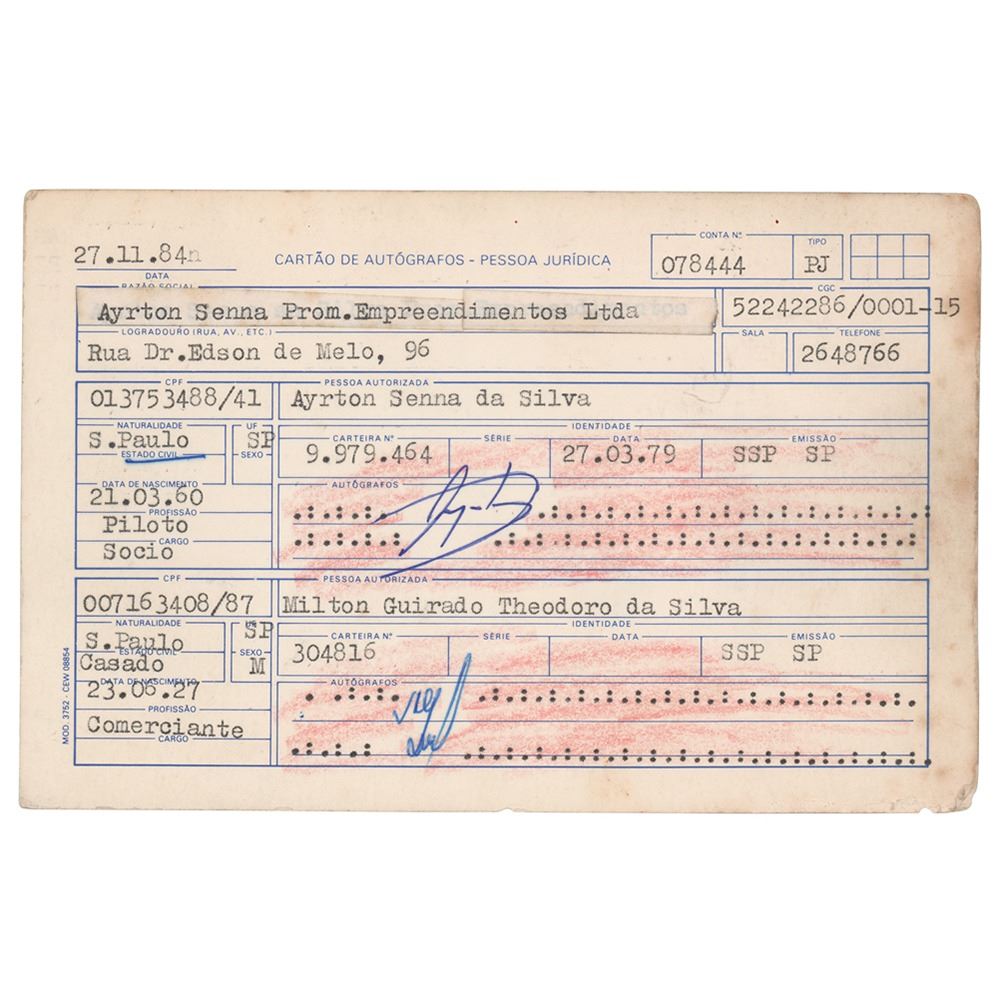 27.11.84
DATA
CARTÃO DE AUTÓGRAFOS - PESSOA JURÍDICA
CONTA Nº
078444
TIPO
PJ
RAZÃO SOCIAL
Ayrton Senna Prom.Empreendimentos Ltda
CGC
52242286/0001-15
LOGRADOURO (RUA, AV., ETC.)
Rua Dr.Edson de Melo, 96
SALA
TELEFONE
2648766
CPF
013753488/41
PESSOA AUTORIZADA
Ayrton Senna da Silva
NATURALIDADE
S.Paulo
UF
SP
ESTADO CIVIL
SEXO
IDENTIDADE
CARTEIRA Nº
9.979.464
SÉRIE
DATA
27.03.79
EMISSÃO
SSP SP
DATA DE NASCIMENTO
21.03.60
AUTÓGRAFOS
PROFISSÃO
Piloto
CARGO
Socio
CPF
007163408/87
PESSOA AUTORIZADA
Milton Guirado Theodoro da Silva
NATURALIDADE
S.Paulo
SP
ESTADO CIVIL
Casado
SEXO
M
IDENTIDADE
CARTEIRA Nº
304816
SÉRIE
DATA
EMISSÃO
SSP SP
DATA DE NASCIMENTO
23.06.27
AUTÓGRAFOS
PROFISSÃO
Comerciante
CARGO
MOD. 3752 - CEW 08854